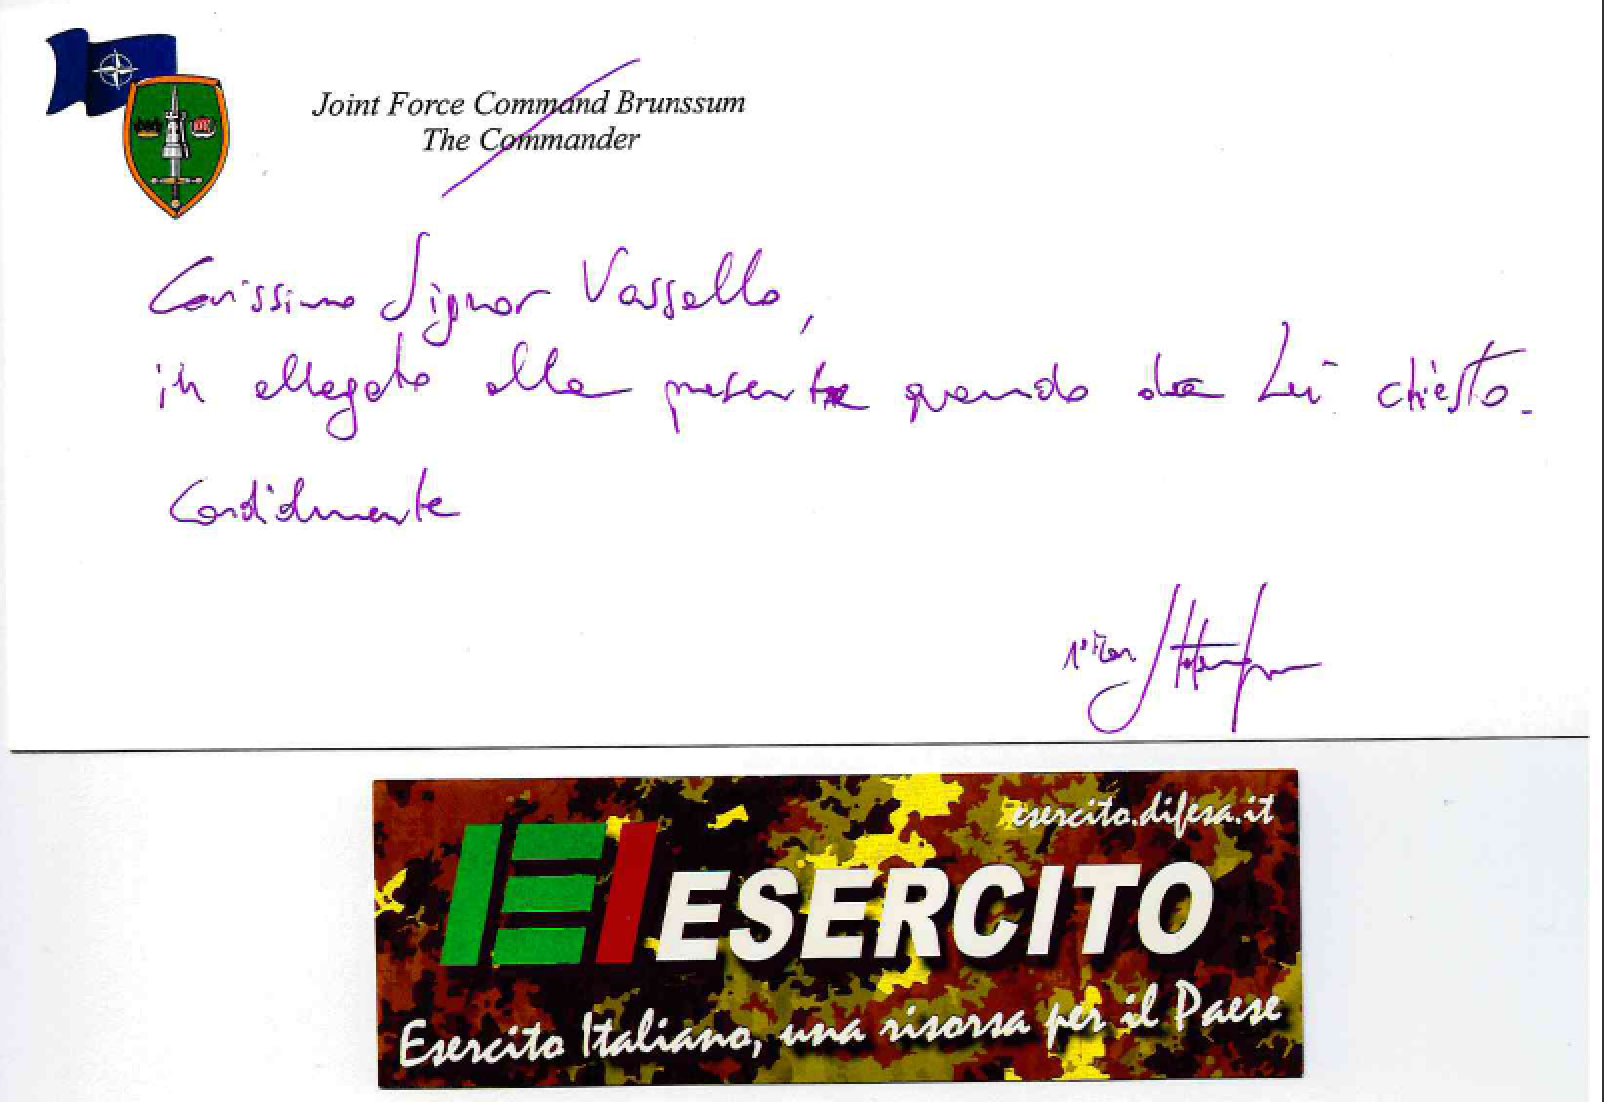 Joint Force Command Brunssum
The Commander
Carissimo Signor Vassallo,
in allegato alla presente quando da Lei chiesto.
Cordialmente
esercito.difesa.it
EI ESERCITO
Esercito Italiano, una risorsa per il Paese